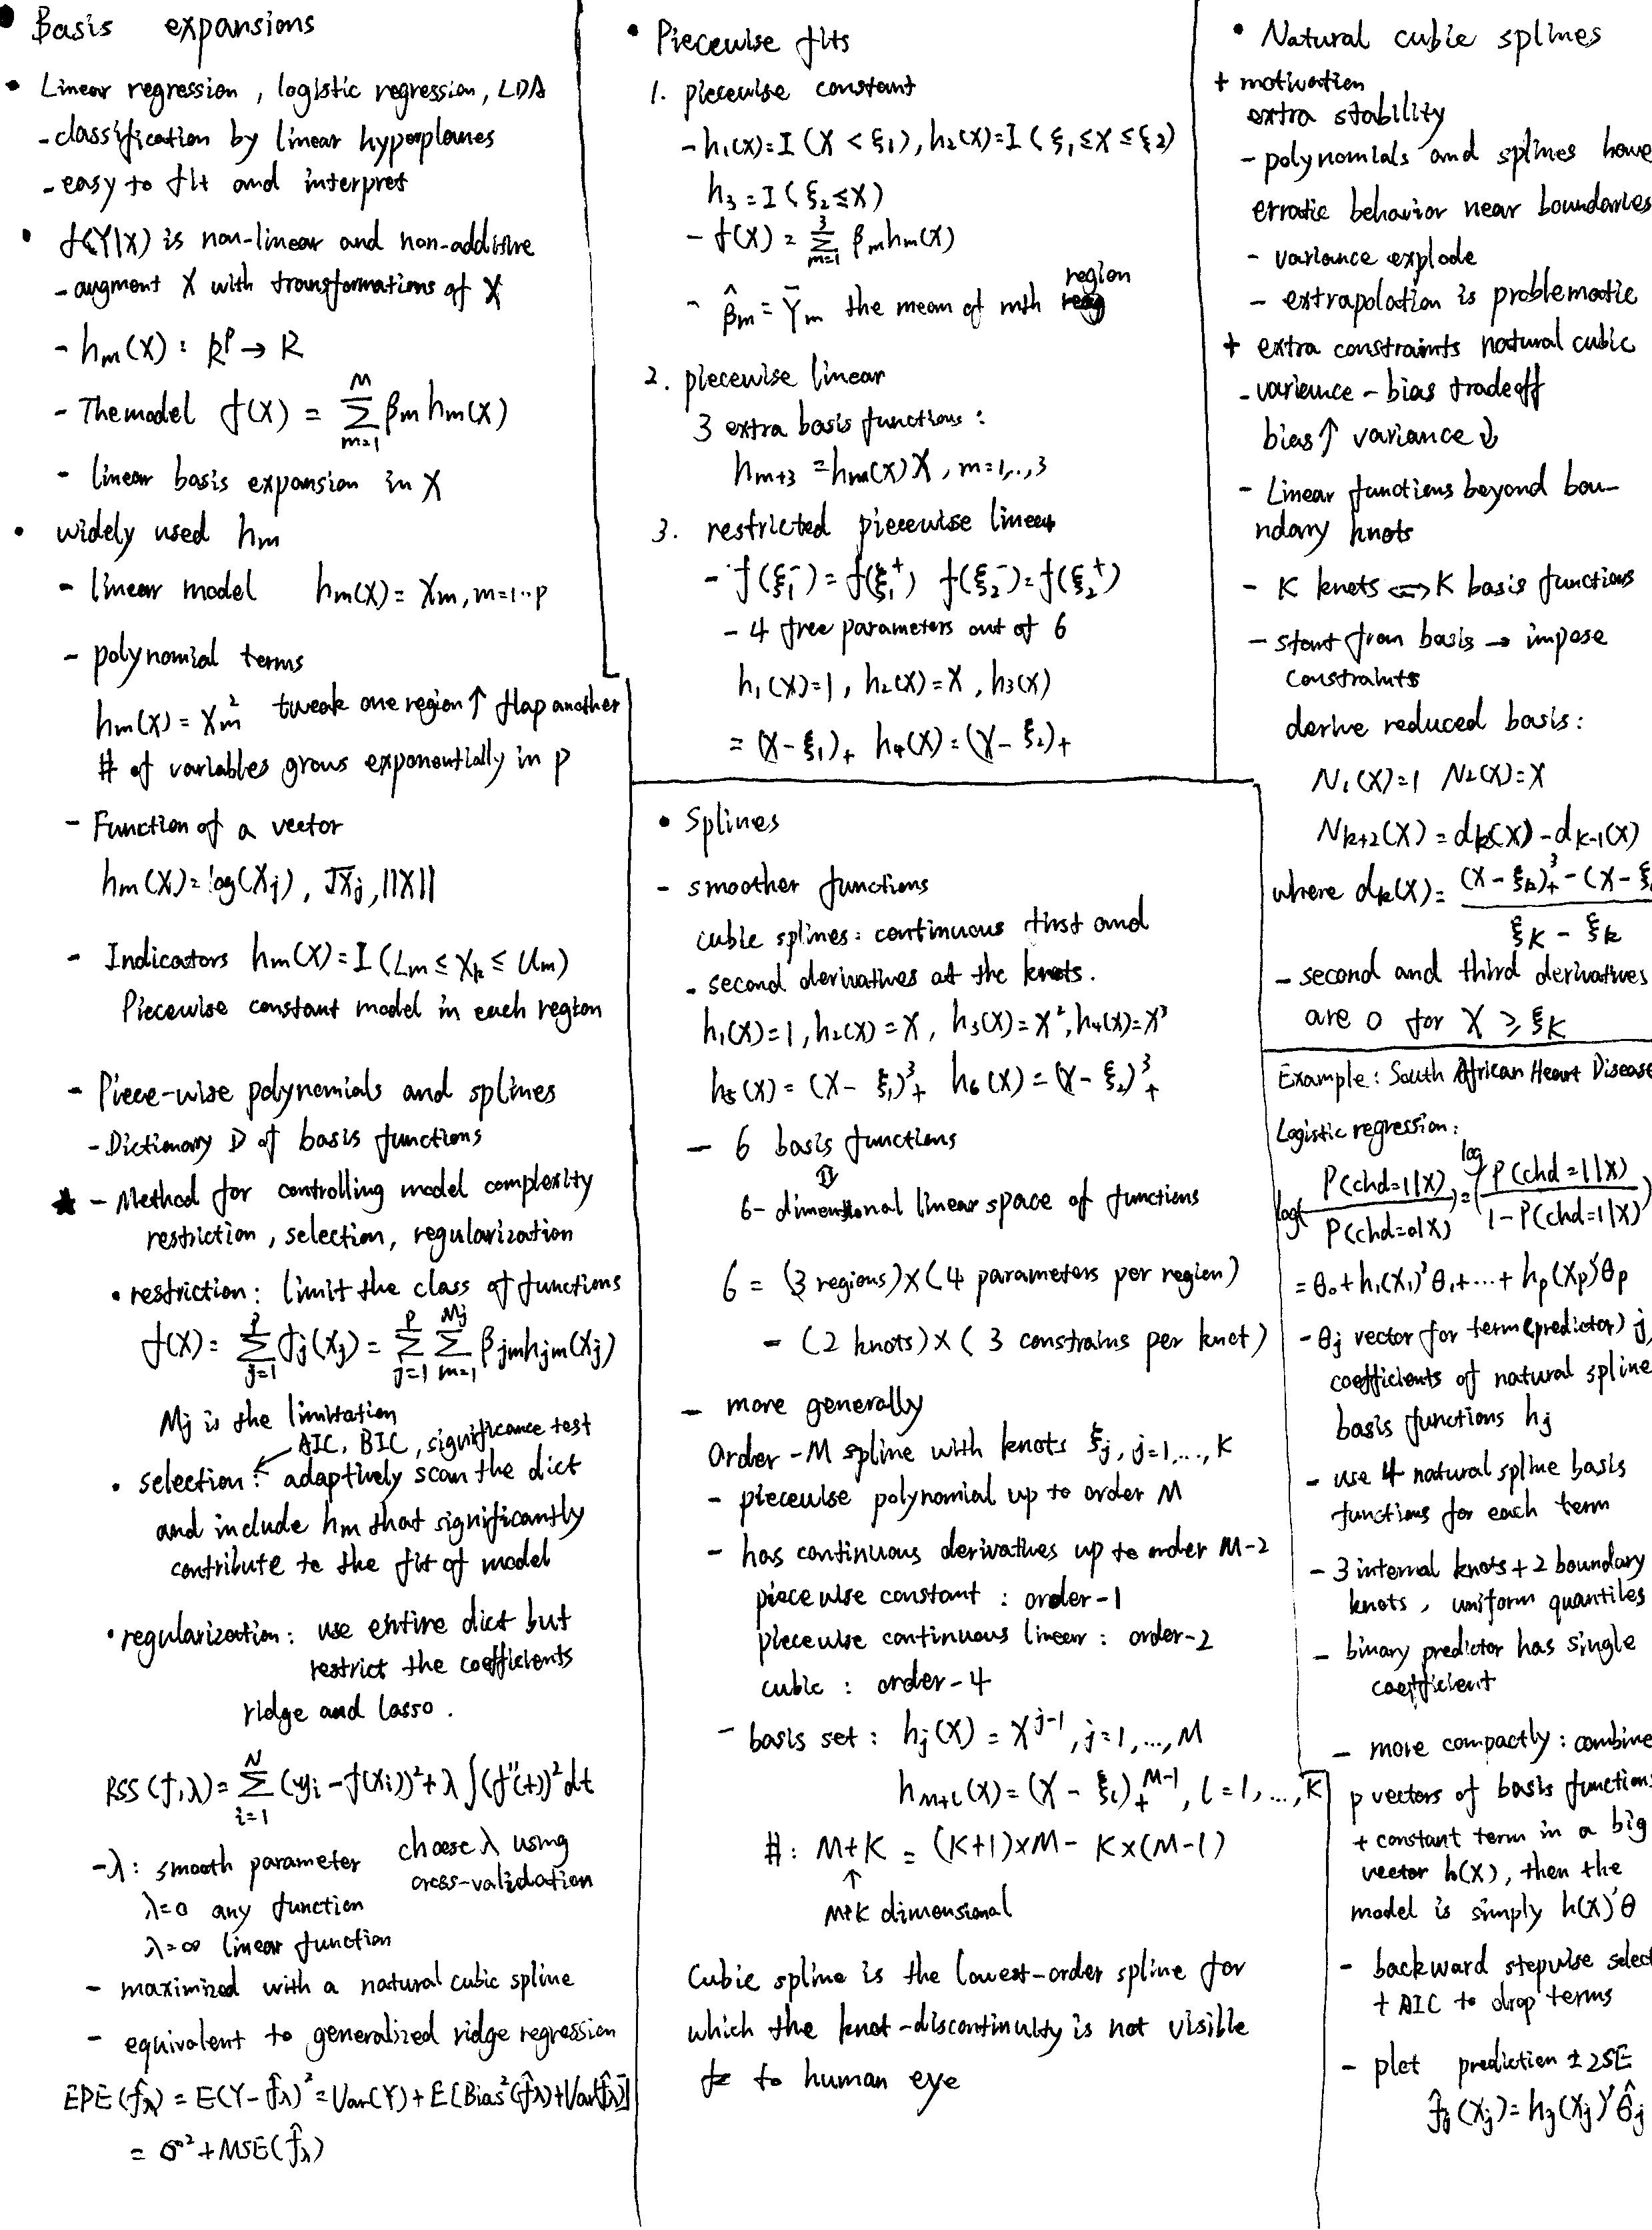 • Basis expansions
• Linear regression, logistic regression, LDA
- classification by linear hyperplanes
- easy to fit and interpret
• f(Y|X) is non-linear and non-additive
- augment X with transformations of X
- hm(X) : R^p → R
- The model f(X) = Σ_{m=1}^{M} βm hm(X)
- linear basis expansion in X
• widely used hm
- linear model hm(X) = Xm, m=1..p
- polynomial terms
hm(X) = Xm² tweak one region ↑ flap another
# of variables grows exponentially in p
- Function of a vector
hm(X) = log(Xj), √Xj, ||X||
- Indicators hm(X) = I(Lm ≤ Xk ≤ Um)
Piecewise constant model in each region
- Piece-wise polynomials and splines
- Dictionary D of basis functions
★ - Method for controlling model complexity
restriction, selection, regularization
• restriction: limit the class of functions
f(X) = Σ_{j=1}^{p} fj(Xj) = Σ_{j=1}^{p} Σ_{m=1}^{Mj} βjm hjm(Xj)
Mj is the limitation
AIC, BIC, significance test
• selection: adaptively scan the dict
and include hm that significantly
contribute to the fit of model
• regularization: use entire dict but
restrict the coefficients
ridge and lasso.
RSS(f,λ) = Σ_{i=1}^{N} (yi - f(xi))² + λ∫(f''(t))² dt
- λ: smooth parameter choose λ using
cross-validation
λ=0 any function
λ=∞ linear function
- maximized with a natural cubic spline
- equivalent to generalized ridge regression
EPE(f̂λ) = E(Y-f̂λ)² = Var(Y) + E[Bias²(f̂λ)+Var(f̂λ)]
= σ² + MSE(f̂λ)
• Piecewise fits
1. piecewise constant
- h1(X) = I(X < ξ1), h2(X) = I(ξ1 ≤ X ≤ ξ2)
h3 = I(ξ2 ≤ X)
- f(X) = Σ_{m=1}^{3} βm hm(X)
- β̂m = Ȳm the mean of mth region
2. piecewise linear
3 extra basis functions:
hm+3 = hm(X)X, m=1,..,3
3. restricted piecewise linear
- f(ξ1⁻) = f(ξ1⁺) f(ξ2⁻) = f(ξ2⁺)
- 4 free parameters out of 6
h1(X)=1, h2(X)=X, h3(X)
= (X-ξ1)+ h4(X) = (X-ξ2)+
• Splines
- smoother functions
cubic splines: continuous first and
- second derivatives at the knots.
h1(X)=1, h2(X)=X, h3(X)=X², h4(X)=X³
h5(X) = (X-ξ1)³+ h6(X) = (X-ξ2)³+
- 6 basis functions
⇕
6-dimensional linear space of functions
6 = (3 regions)×(4 parameters per region)
- (2 knots)×(3 constrains per knot)
- more generally
Order-M spline with knots ξj, j=1,...,K
- piecewise polynomial up to order M
- has continuous derivatives up to order M-2
piecewise constant : order-1
piecewise continuous linear : order-2
cubic : order-4
- basis set : hj(X) = X^{j-1}, j=1,...,M
hM+l(X) = (X-ξl)+^{M-1}, l=1,...,K
#: M+K = (K+1)×M - K×(M-1)
↑
M+K dimensional
Cubic spline is the lowest-order spline for
which the knot-discontinuity is not visible
to human eye
• Natural cubic splines
+ motivation
extra stability
- polynomials and splines have
erratic behavior near boundaries
- variance explode
- extrapolation is problematic
+ extra constraints natural cubic
- variance-bias tradeoff
bias↑ variance↓
- Linear functions beyond bou-
ndary knots
- K knots ⟺ K basis functions
- start from basis → impose
constraints
derive reduced basis:
N1(X)=1 N2(X)=X
Nk+2(X) = dk(X) - dK-1(X)
where dk(X) = (X-ξk)³+ - (X-ξ
ξK - ξk
- second and third derivatives
are 0 for X ≥ ξK
Example: South African Heart Disease
Logistic regression:
log( P(chd=1|X) / P(chd=0|X) = log( P(chd=1|X) / 1-P(chd=1|X) )
= θ0 + h1(X1)'θ1 + ... + hp(Xp)'θp
- θj vector for term(predictor) j,
coefficients of natural spline
basis functions hj
- use 4 natural spline basis
functions for each term
- 3 internal knots + 2 boundary
knots, uniform quantiles
- binary predictor has single
coefficient
- more compactly: combine
p vectors of basis functions
+ constant term in a big
vector h(X), then the
model is simply h(X)'θ
- backward stepwise select
+ AIC to drop terms
- plot prediction ± 2SE
f̂j(Xj) = hj(Xj)'θ̂j